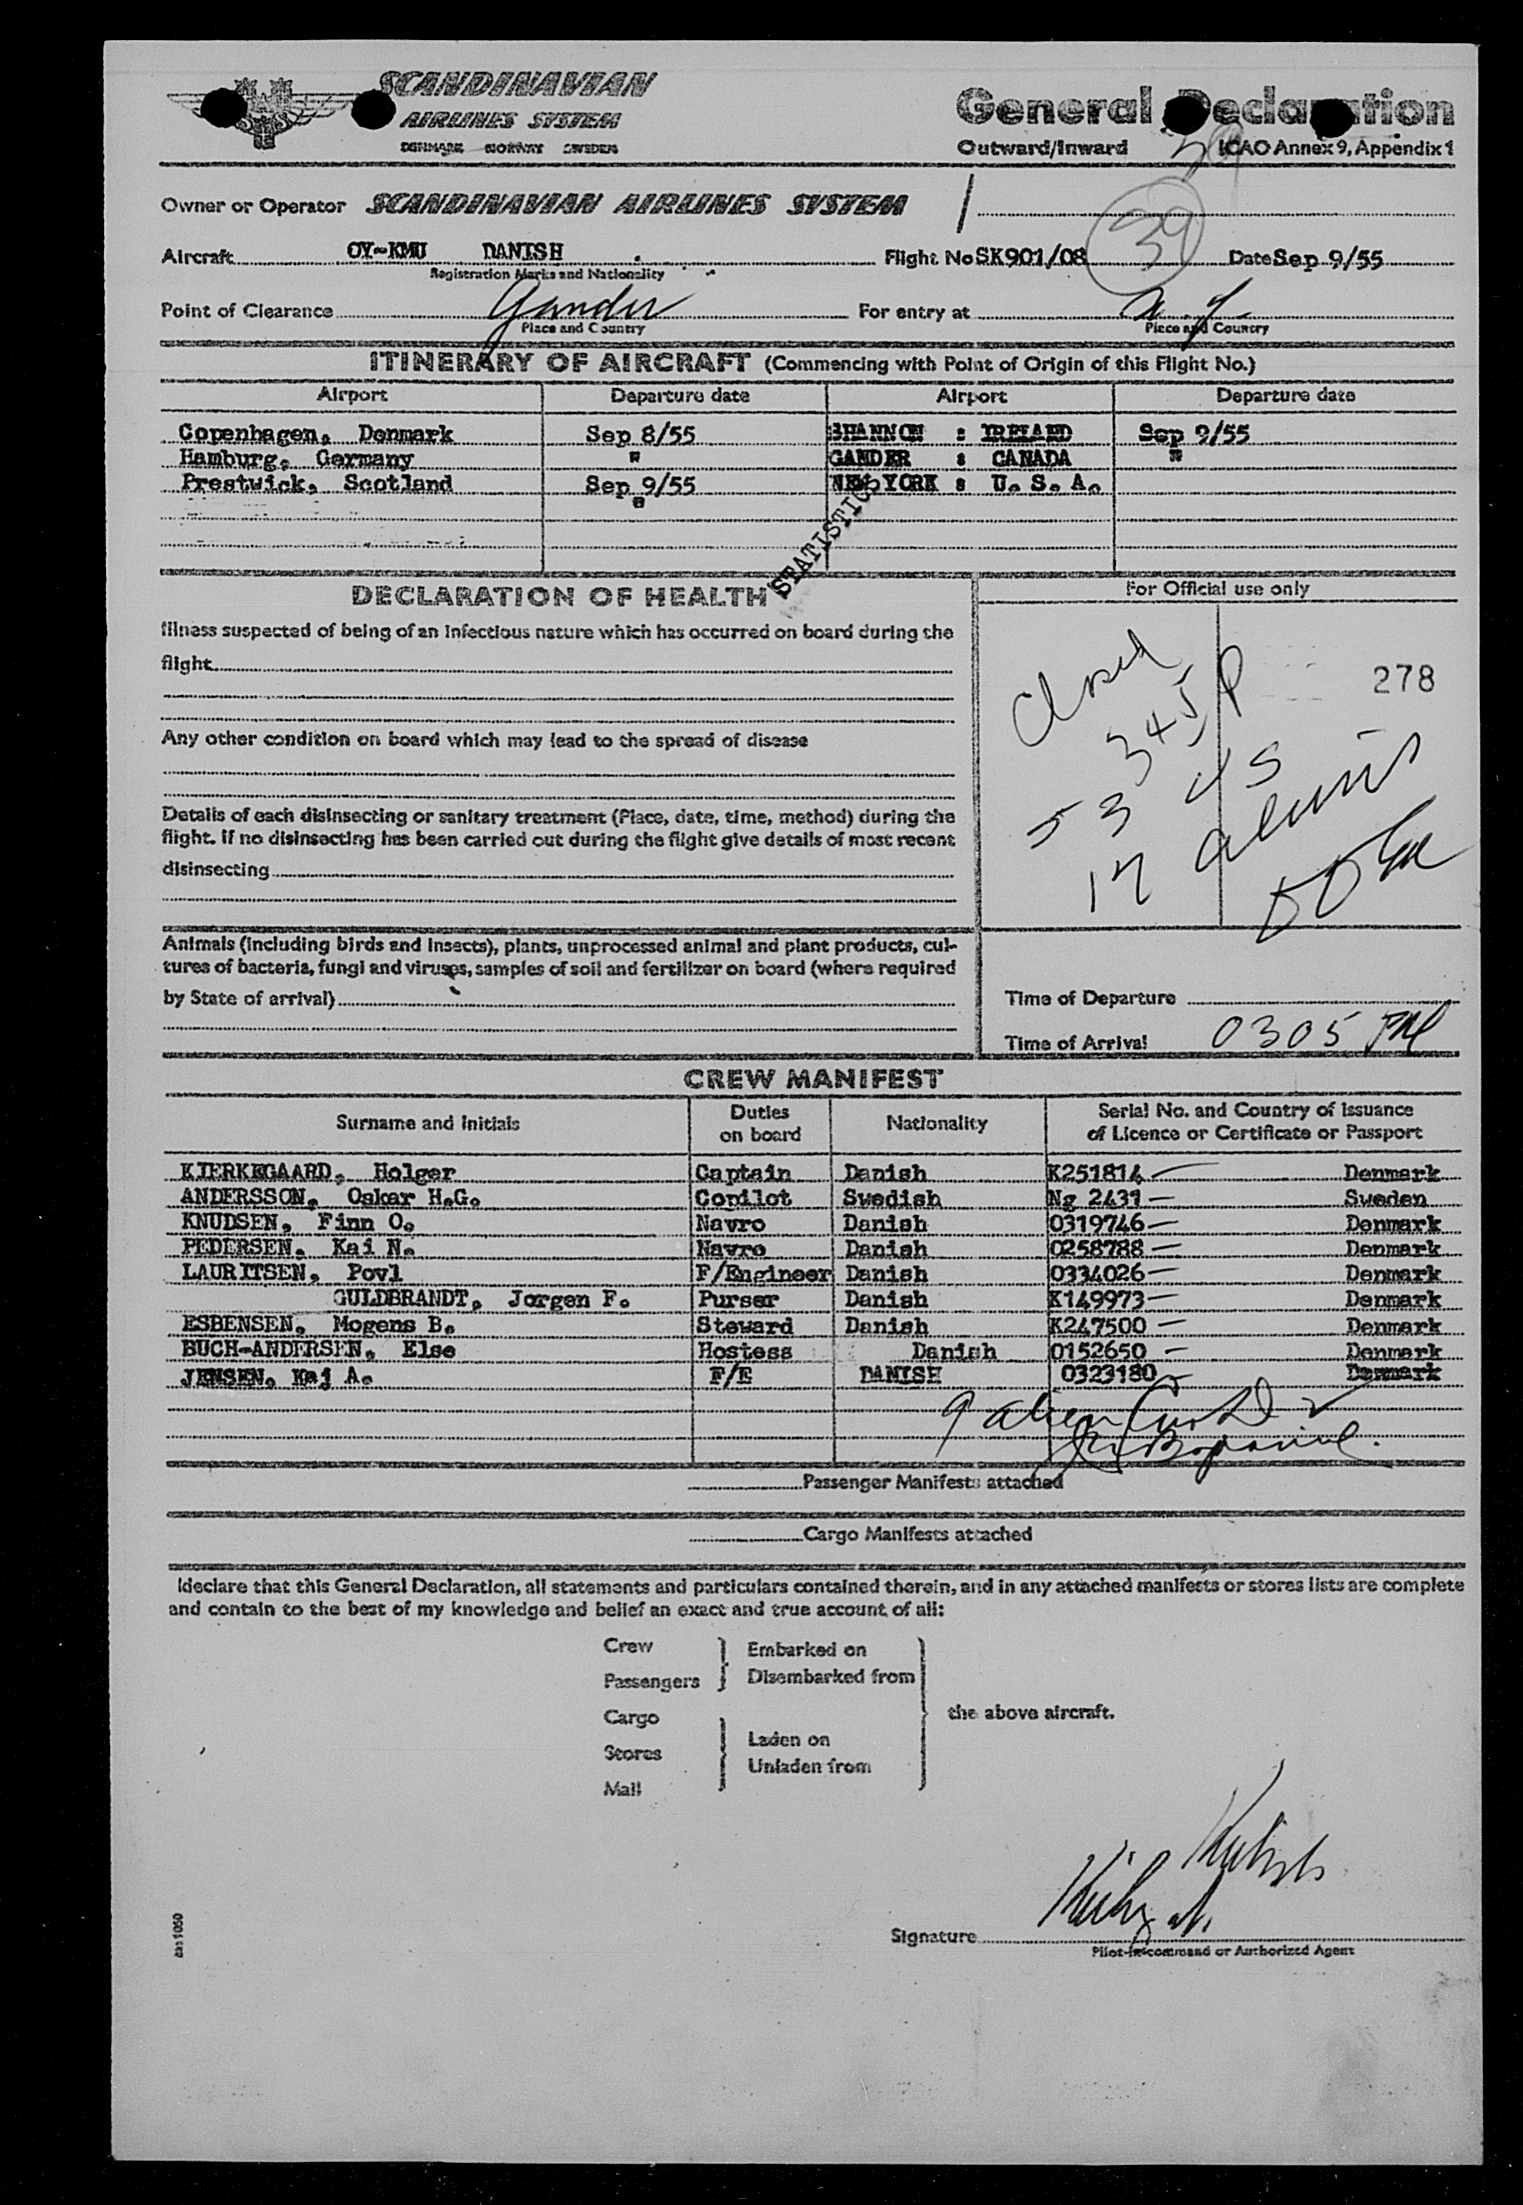 SCANDINAVIAN
AIRLINES SYSTEM
DENMARK NORWAY SWEDEN
General Declaration
Outward/Inward ICAO Annex 9, Appendix 1
Owner or Operator SCANDINAVIAN AIRLINES SYSTEM
39
Aircraft OY-KMU DANISH Flight No SK901/08 Date Sep 9/55
Registration Marks and Nationality
Point of Clearance Gander For entry at N.Y.
Place and Country Place and Country
ITINERARY OF AIRCRAFT (Commencing with Point of Origin of this Flight No.)
Airport Departure date Airport Departure date
Copenhagen, Denmark Sep 8/55 SHANNON : IRELAND Sep 9/55
Hamburg, Germany " GANDER : CANADA "
Prestwick, Scotland Sep 9/55 NEW YORK : U. S. A.
STATISTICS
DECLARATION OF HEALTH
For Official use only
Illness suspected of being of an infectious nature which has occurred on board during the
flight
Closed
345 P
278
Any other condition on board which may lead to the spread of disease
53 US
17 aliens
Details of each disinsecting or sanitary treatment (Place, date, time, method) during the
flight. If no disinsecting has been carried out during the flight give details of most recent
disinsecting
Animals (including birds and insects), plants, unprocessed animal and plant products, cul-
tures of bacteria, fungi and viruses, samples of soil and fertilizer on board (where required
by State of arrival)
Time of Departure
Time of Arrival 0305 PM
CREW MANIFEST
Surname and Initials Duties on board Nationality Serial No. and Country of Issuance of Licence or Certificate or Passport
KIERKEGAARD, Holger Captain Danish K251814 Denmark
ANDERSSON, Oskar H.G. Copilot Swedish Ng 2431 Sweden
KNUDSEN, Finn O. Navro Danish 0319746 Denmark
PEDERSEN, Kai N. Navro Danish 0258788 Denmark
LAURITSEN, Povl F/Engineer Danish 0334026 Denmark
GULDBRANDT, Jorgen F. Purser Danish K149973 Denmark
ESBENSEN, Mogens B. Steward Danish K247500 Denmark
BUCH-ANDERSEN, Else Hostess Danish 0152650 Denmark
JENSEN, Kaj A. F/E DANISH 0323180 Denmark
9 alien
Passenger Manifests attached
Cargo Manifests attached
I declare that this General Declaration, all statements and particulars contained therein, and in any attached manifests or stores lists are complete
and contain to the best of my knowledge and belief an exact and true account of all:
Crew
Passengers
Embarked on
Disembarked from
Cargo
Stores
Mail
Laden on
Unladen from
the above aircraft.
Signature
Pilot-in-command or Authorized Agent
sas 1050